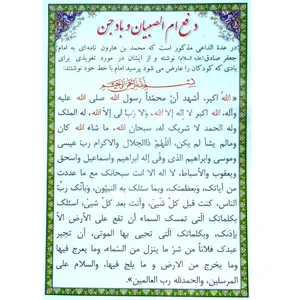 دفع ام الصبیان و باد جن
در عدة الداعی مذکور است که محمد بن هارون نامه‌ای به امام
جعفر صادق (علیه السلام) نوشته و از ایشان در مورد تعویذی برای
بادی که کودکان را عارض می شود پرسید امام با خط خود نوشتند:
بسم الله الرحمن الرحیم
«الله اکبر، أشهد أن محمّداً رسول الله صلی الله علیه
وآله، الله اکبر لا إله إلا الله، ولا ربّ لی إلا الله، له الملک
وله الحمد لا شریک له، سبحان الله، ما شاء الله کان
ومالم یشأ لم یکن، اللّهمّ ذالجلال والاکرام رب عیسی
وموسی وابراهیم الذی وفّی إله ابراهیم واسماعیل واسحق
ویعقوب والأسباط، لا اله الا انت سبحانک مع ما عددت
من آیاتک، وبعظمتک، وبما سئلک به النبیّون، وبأنّک ربّ
الناس، کنت قبل کل شیئ، وأنت بعد کلّ شیئ، اسئلک
بکلماتک الّتی تمسک السماء أن تقع علی الأرض الاّ
بإذنک، وبکلماتک الّتی تحیی بها الموتی، أن تجیر
عبدک فلاناً من شرّ ما ینزل من السّماء، وما یعرج فیها
وما یخرج من الارض و ما یلج فیها، والسلام علی
المرسلین، والحمدلله رب العالمین».